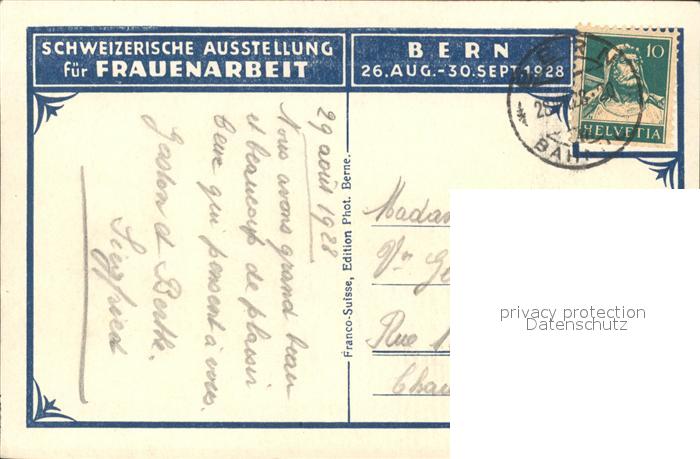 SCHWEIZERISCHE AUSSTELLUNG
für FRAUENARBEIT
BERN
26. AUG.-30. SEPT. 1928
10
HELVETIA
29 août 1928
Nous avons grand beau
et beaucoup de plaisir
ceux qui pensent à vous.
Gaston & Berthe.
Siegfried
Franco-Suisse, Edition Phot. Berne.
Madam
Rue
privacy protection
Datenschutz